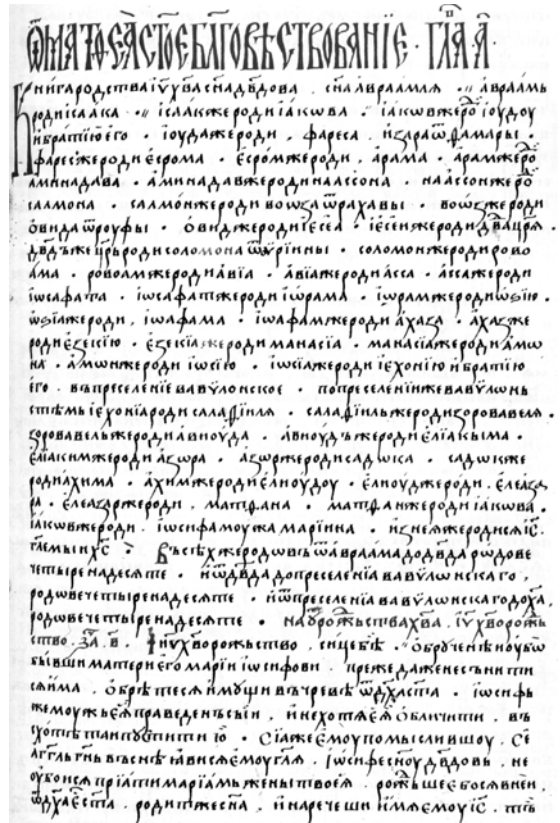 Ѿ МАТѲЕѦ СТ҃ОЕ БЛ҃ГОВѢСТВОВАНЇЕ · ГЛ҃А А҃ ·
Книга родства і҃ѵ х҃ва сн҃а дв҃дова · сн҃а авраамлѧ ·· авраамь
роди ісаака ·· ісаакже роди іакѡва ·· іакѡвже рѡ іоудоу
и братїю его · іоудаже роди , фареса , и зара ѿ ѳамары ·
фаресже роди есрома · есромже роди , арама · арамже рѡ
аминадава · аминадавже роди наассона · наассонже рѡ
салмона · салмонже роди вооза ѿ рахавы · воозже роди
овида ѿ роуфы · овидже роди іесеа · іесеиже роди дв҃да цр҃ѧ
дв҃дъже цр҃ь роди соломона ѿ ѹрїины · соломонже роди рово
ама · ровоамже роди авїа · авїаже роди асса · ассаже роди
іѡсафата · іѡсафатже роди іѡрама · іѡрамже роди ѡзїю ·
ѡзїаже роди , іѡафама · іѡафамже роди ахаза · ахазже
роди езекїю · езекїаже роди манасїа · манасїаже роди амѡ
на · амѡнже роди іѡсїю · іѡсїаже роди іехонїю и братїю
его · въ преселенїе вавѵлонское · по преселенїиже вавѵлонь
стѣмь іехонїа роди салаѳїилѧ · салаѳїильже роди зоровавелѧ ·
зоровавельже роди авиоуда · авиоудъже роди елїакыма ·
елїакимже роди азѡра · азѡрже роди садѡка · садѡкже
роди ахима · ахимже роди елиоудоу · елиоудже роди , елеаза
ра · елеазарже роди , матѳана · матѳанже роди іакѡва ·
іакѡвже роди , іѡсифа моужа марїина · из неѧже родисѧ іс҃
гл҃емыи хс҃ · Въсѣхже родѡвъ ѿ авраама до дв҃да рѡдове
четыренадесѧте · и ѿ дв҃да до преселенїа вавѵлѡнскаго ,
родѡве четыренадесѧте · и ѿ преселенїа вавѵлѡнскаго до х҃а ,
родѡве четыренадесѧте · на рожьства хв҃а · і҃ѵ х҃во рожь
ство · за҃ в҃ · І҃ѵ х҃во рожьство , сице бѣ ·· обрученѣ и оубо
бывши матери его марїи іѡсифови · прежедаже не сънити
сѧ има · обрѣтесѧ имущи въ чревѣ ѿ дх҃а ст҃а · іѡсифь
же моужь еѧ праведенъ сыи , и не хотѧ еѧ обличити · въ
схотѣ таи пустити ю · сїаже емоу помысливтоу · се
агг҃лъ гн҃ь въ снѣ ꙗвисѧ емоу гл҃ѧ · іѡсифе сн҃оу дв҃довь , не
оубоисѧ прїати марїамь жены твоеѧ · рожьшеебосѧ в неи
ѿ дх҃а ес ст҃а · родитже сн҃а , и наречеши имѧ емоу іс҃ · тъ